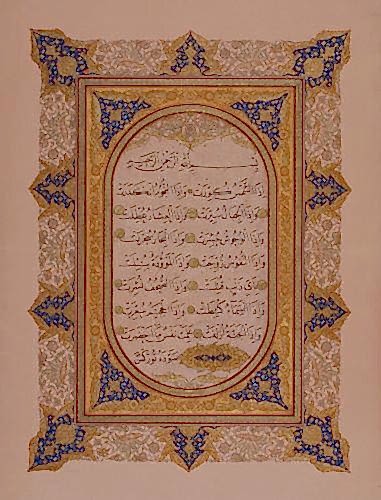 بسم الله الرحمن الرحيم
اذا الشمس كورت واذا النجوم انكدرت
واذا الجبال سيرت واذا العشار عطلت
واذا الوحوش حشرت واذا البحار سجرت
واذا النفوس زوجت واذا الموؤدة سئلت
باي ذنب قتلت واذا الصحف نشرت
واذا السماء كشطت واذا الجحيم سعرت
واذا الجنة ازلفت علمت نفس ما احضرت
سوده